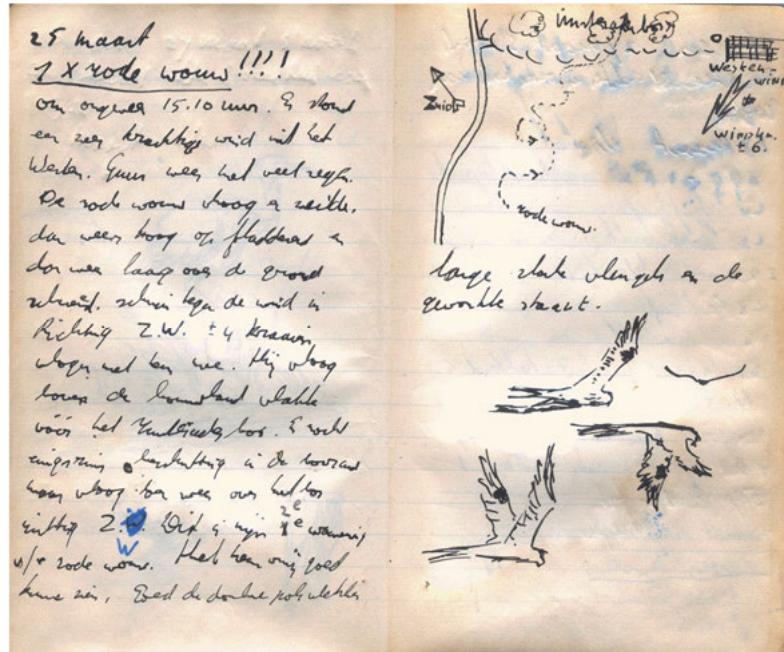 25 maart
1 X rode wouw!!!!
om ongeveer 15.10 uur. Er stond
een zeer krachtige wind uit het
Westen. Guur weer met veel regen.
De rode wouw vloog en zeilde.
dan weer hoog op fladderend en
dan weer laag over de grond
scherend. schuin tegen de wind in
Richting Z.W. ± 4 kraaien
vlogen met hem mee. Hij vloog
boven de bouwland vlakte
vóór het bos. Er
in de
maar vloog toen weer over het bos
richting Z.W. Dit is mijn 2e waarneming
v/e rode wouw. Heb hem vrij goed
kunnen zien. Goed de donkere polsvlekken
bos
Westen-
wind
windkr.
± 6.
Zuid
rode wouw.
lange vleugels en de
gevorkte staart.